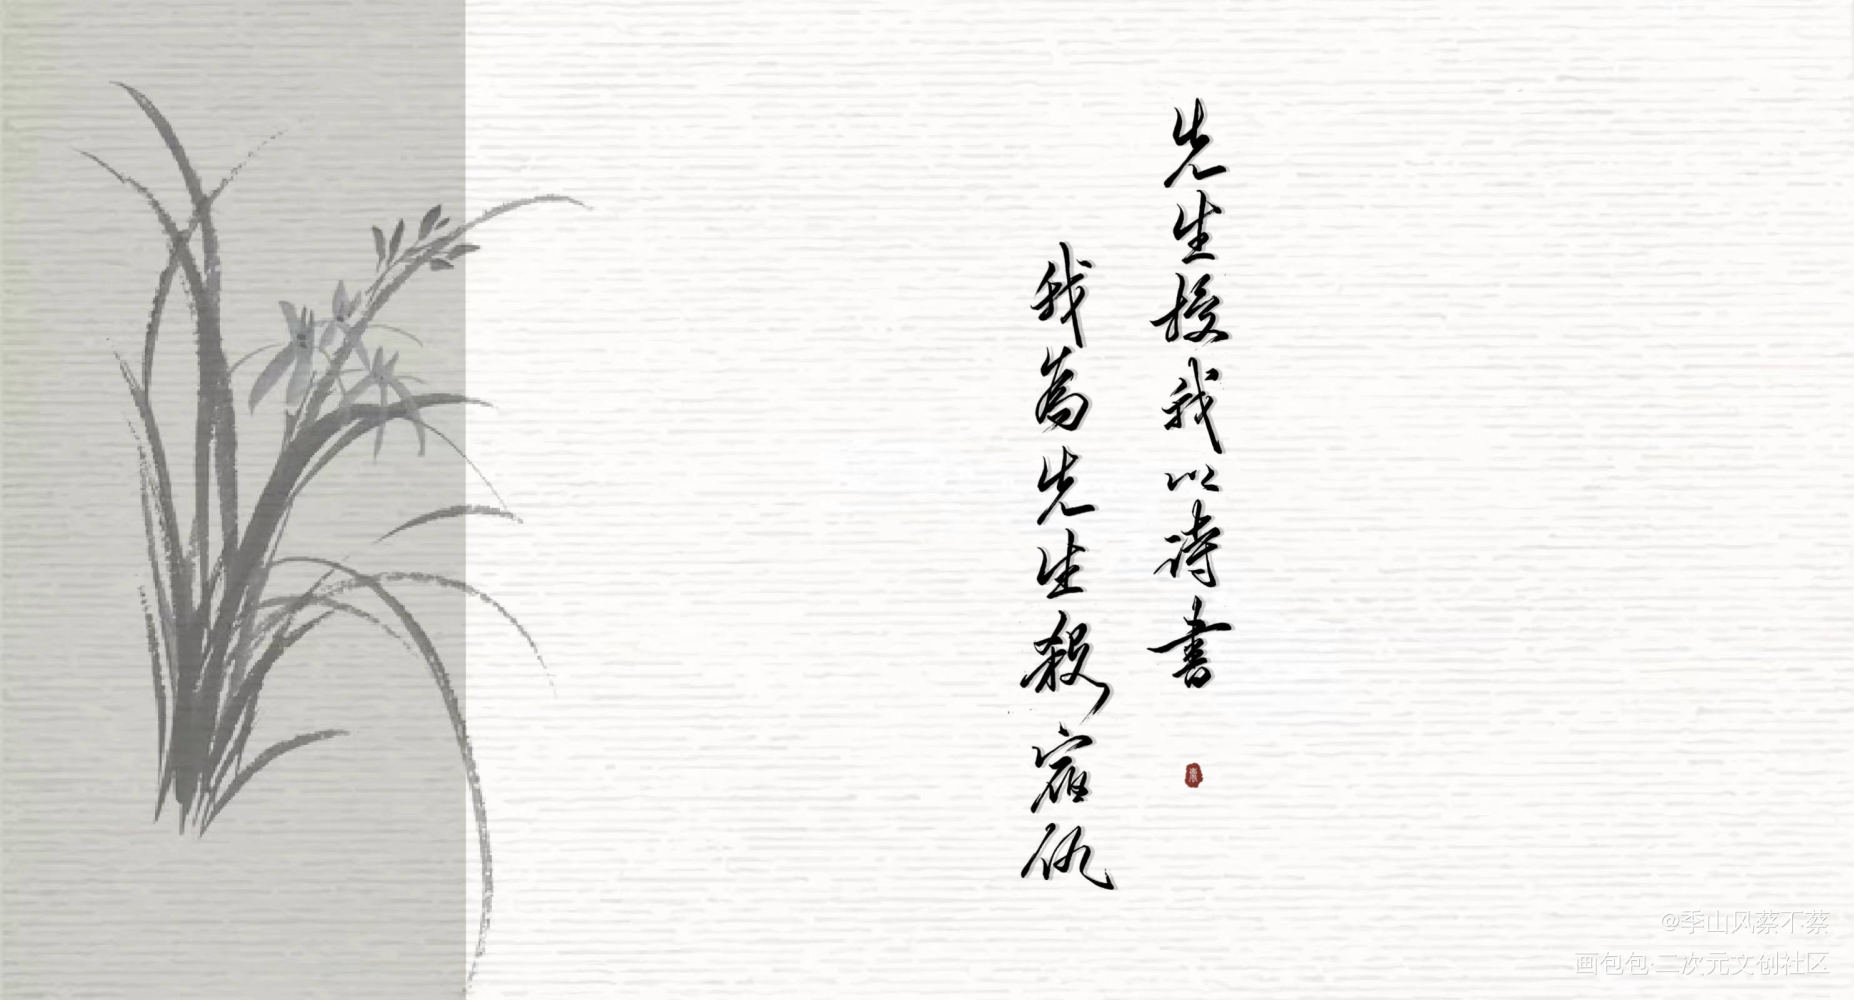 先生授我以诗書
我為先生殺寇仇
@季山风蔡不蔡
画包包·二次元文创社区